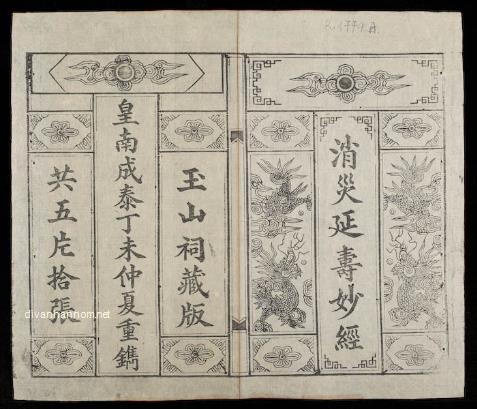 消災延壽妙經
玉山祠藏版
皇南成泰丁未仲夏重鐫
共五片拾張
divanhannom.net